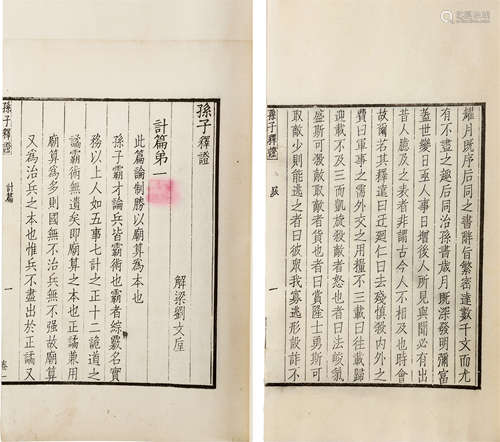 孫子釋證
計篇第一
解梁劉文垕
此篇論制勝以廟算為本也
孫子霸才論兵皆霸術也霸者綜覈名實
務以上人如五事七計之正十二詭道之
譎霸術無遺矣即廟算之本也正譎兼用
廟算為多則國無不治兵無不強故廟算
又為治兵之本也惟兵不盡出於正譎又
孫子釋證
計篇
一
卷一
耀月既序后同之書辭旨繁密達數千文而尤
有不盡之趣后同治孫書歲月既深發明彌富
蓋世變日亟人事日增後人所見與聞必有出
昔人聽及之表者非謂古今人不相及也時會
故爾若其釋遣曰正廷仁曰去殘慎漖內外之
費曰軍事之需外交之用糧不三載曰往載歸
迎載不及三而凱放殺敵者怒也者曰法峻氣
盛斯可漖敵取敵者貨也者曰賞隆士勇斯可
取敵少則能逃之者曰彼眾我寡逃形設詐不
孫子釋證
一